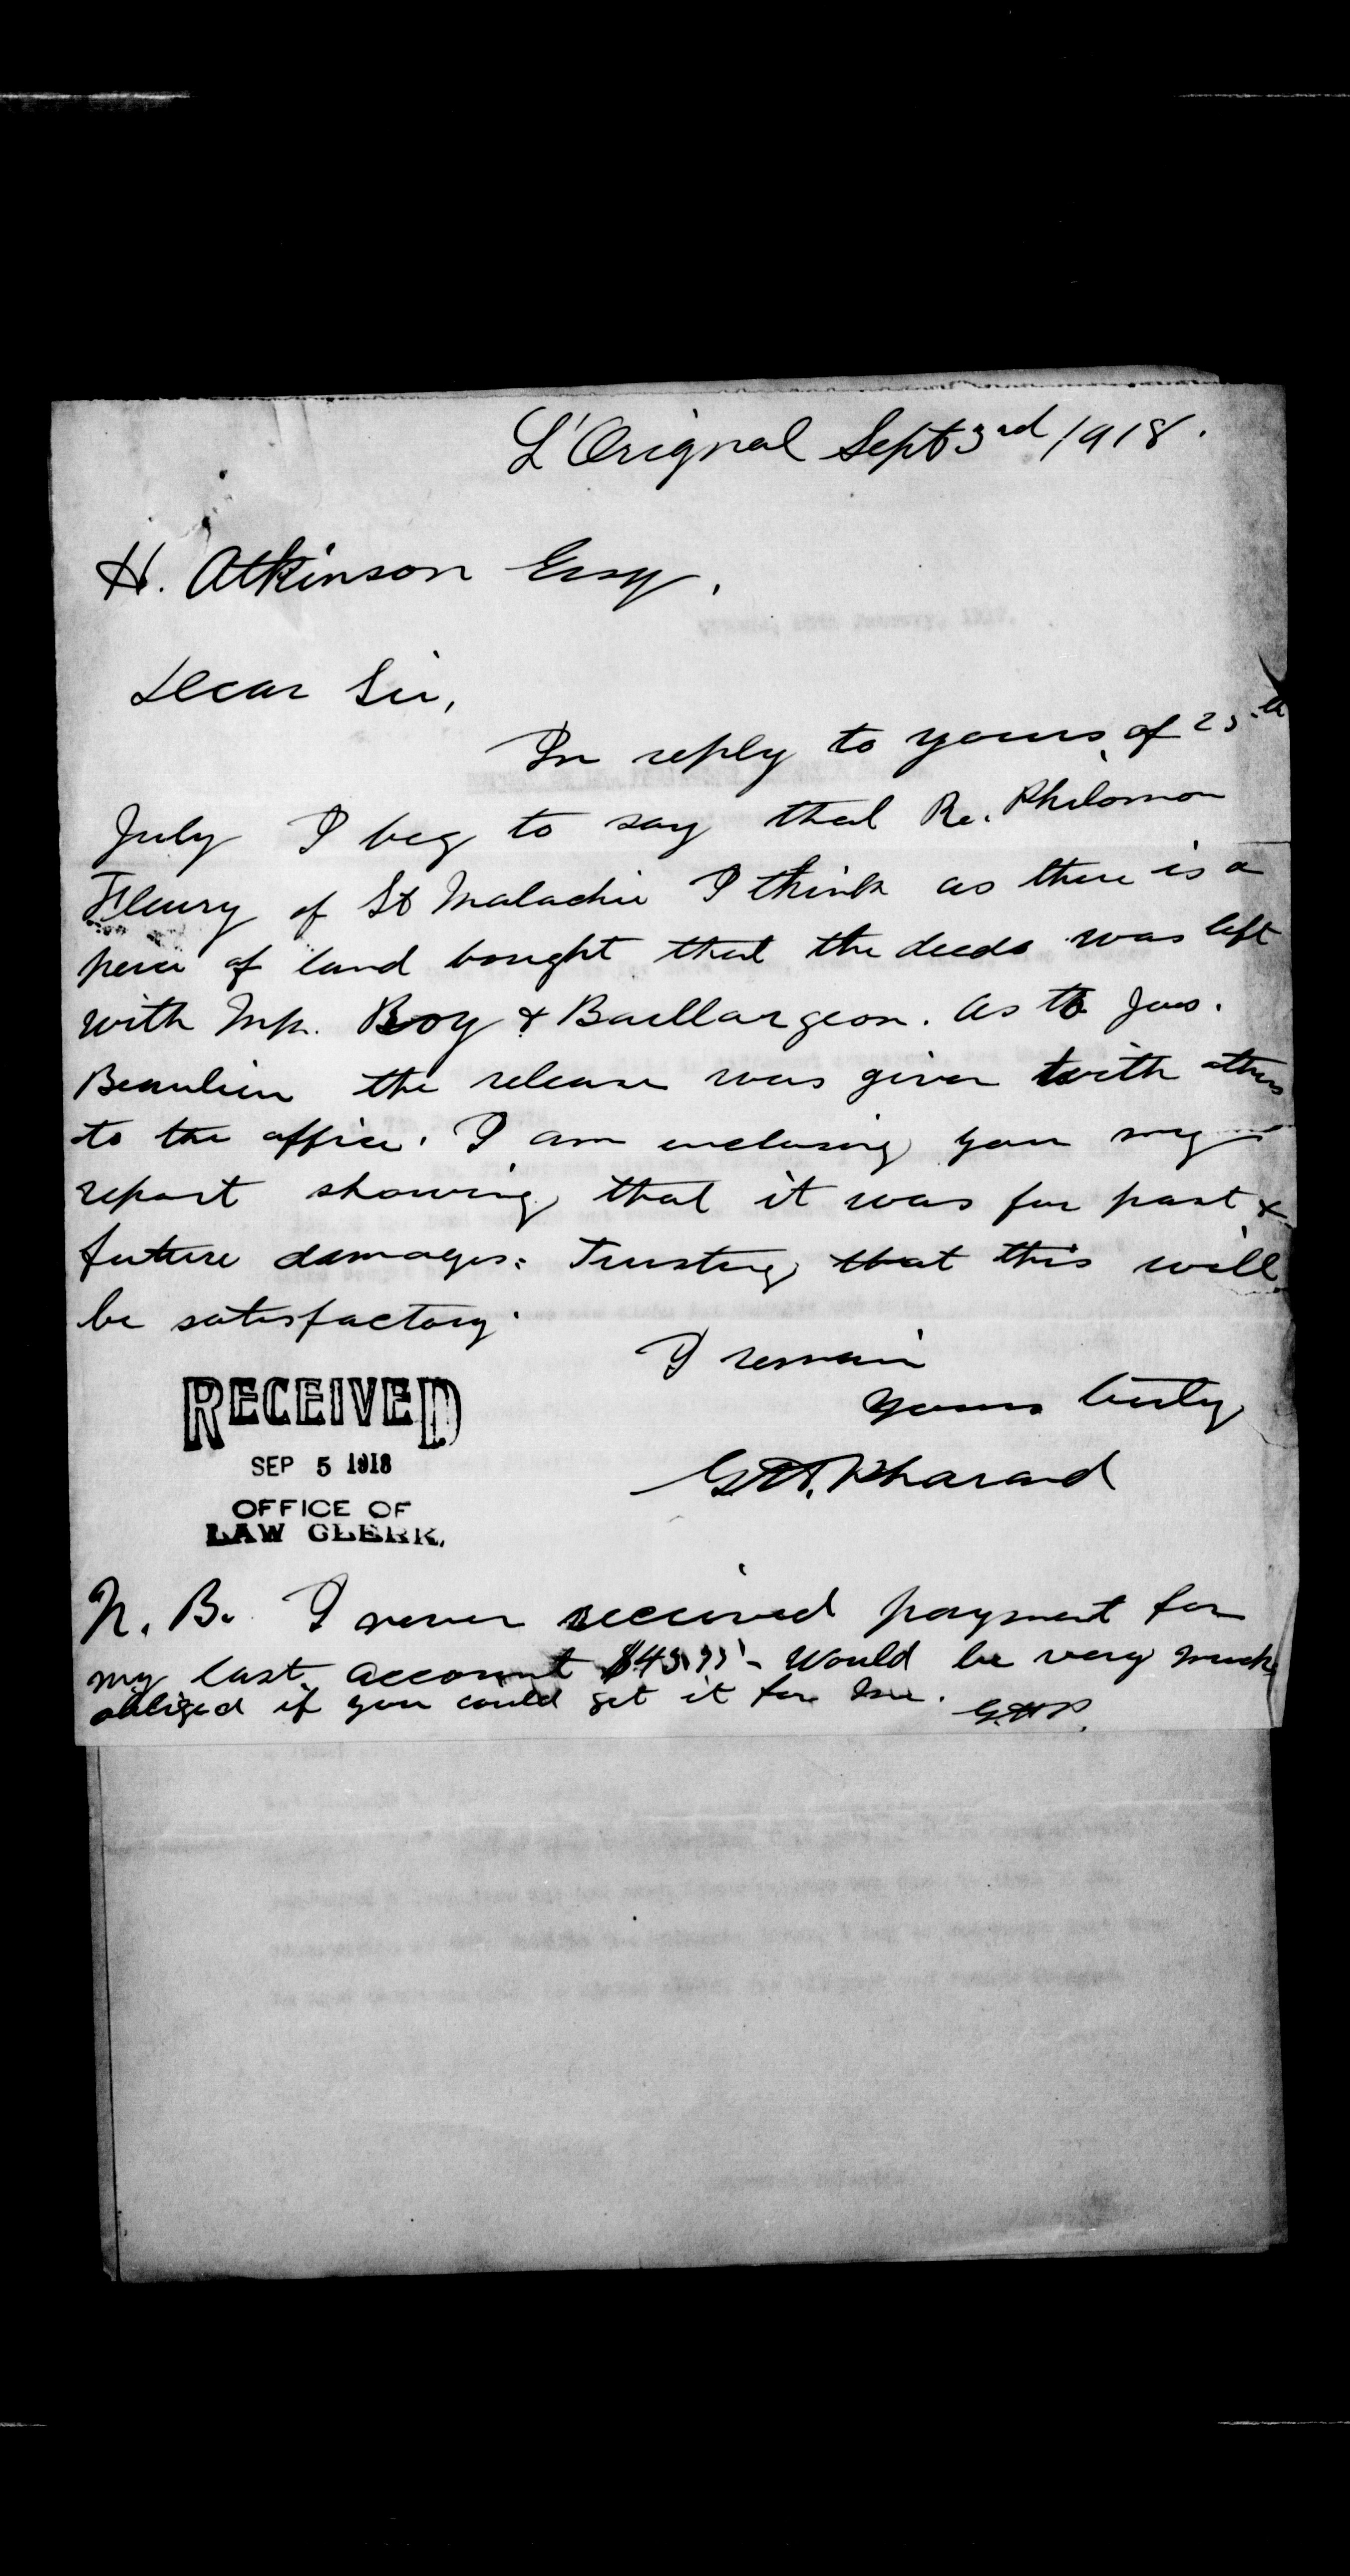 L'Orignal Sept 3rd 1918.
H. Atkinson Esq.
Dear Sir,
In reply to yours of 25th
July I beg to say that Re. Philomon
Fleury of St Malachie I think as there is a
peice of land bought that the deeds was left
with Mr. Roy & Baillargeon. As to Jos.
Beaulieu the release was given with others
to the office. I am enclosing you my
report showing that it was for past &
future damages. Trusting that this will
be satisfactory.
I remain
Yours truly
G.H. Pharand
RECEIVED
SEP 5 1918
OFFICE OF
LAW CLERK.
N. B. I never received payment for
my last account would be very much
obliged if you could get it for me. G.H.P.